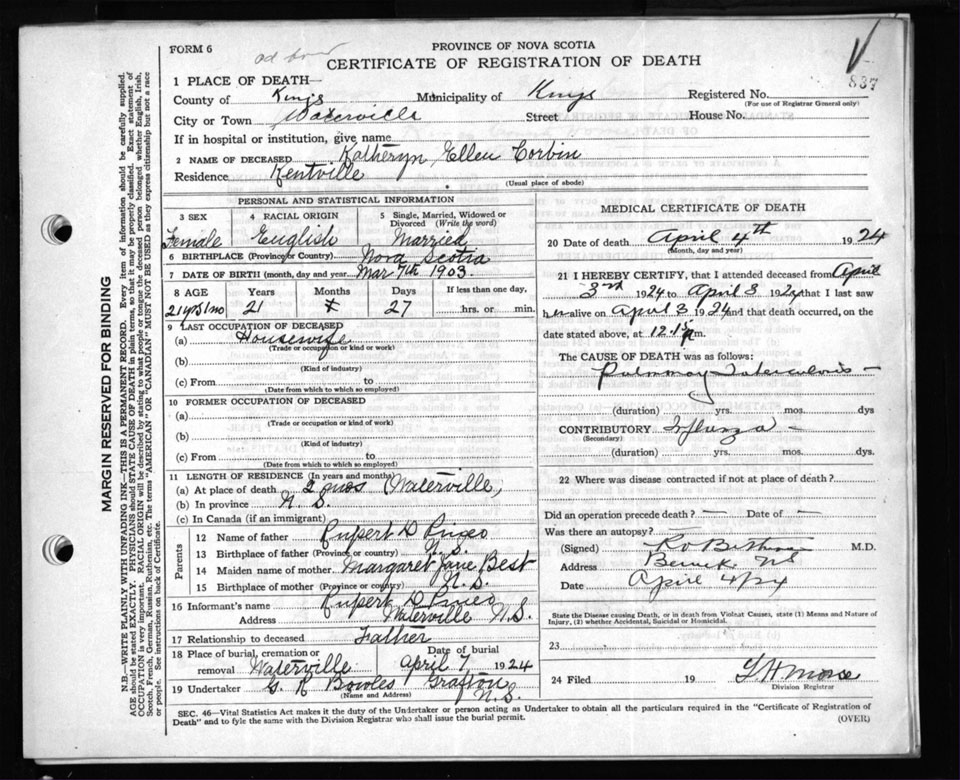 FORM 6
PROVINCE OF NOVA SCOTIA
CERTIFICATE OF REGISTRATION OF DEATH
837
1 PLACE OF DEATH—
County of Kings Municipality of Kings Registered No.
(For use of Registrar General only)
City or Town Waterville Street House No.
If in hospital or institution, give name
2 NAME OF DECEASED Katheryn Ellen Corbin
Residence Kentville
(Usual place of abode)
PERSONAL AND STATISTICAL INFORMATION
3 SEX 4 RACIAL ORIGIN 5 Single, Married, Widowed or Divorced (Write the word)
Female English Married
6 BIRTHPLACE (Province or Country) Nova Scotia
7 DATE OF BIRTH (month, day and year) Mar 7th 1903.
8 AGE Years Months Days If less than one day,
21 yrs 1 mo 21 27 hrs. or min.
9 LAST OCCUPATION OF DECEASED
(a) Housewife
(Trade or occupation or kind of work)
(b)
(Kind of industry)
(c) From to
(Date from which to which so employed)
10 FORMER OCCUPATION OF DECEASED
(a)
(Trade or occupation or kind of work)
(b)
(Kind of industry)
(c) From to
(Date from which to which so employed)
11 LENGTH OF RESIDENCE (In years and months)
(a) At place of death 2 mos (Waterville,
(b) In province N.S.
(c) In Canada (if an immigrant)
Parents
12 Name of father Rupert D Pineo
13 Birthplace of father (Province or country) N.S.
14 Maiden name of mother Margaret Jane Best
15 Birthplace of mother (Province or country) N.S.
16 Informant's name Rupert D Pineo
Address Waterville N.S.
17 Relationship to deceased Father
18 Place of burial, cremation or removal Waterville Date of burial April 7 1924
19 Undertaker G. R Bowles Grafton N.S.
(Name and Address)
MEDICAL CERTIFICATE OF DEATH
20 Date of death April 4th 1924
(Month, day and year)
21 I HEREBY CERTIFY, that I attended deceased from April
3rd 1924 to April 3 1924 that I last saw
her alive on April 3 1924 and that death occurred, on the
date stated above, at 12.15 m.
The CAUSE OF DEATH was as follows:
Pulmonary Tuberculosis —
(duration) yrs. mos. dys
CONTRIBUTORY Influenza —
(Secondary)
(duration) yrs. mos. dys
22 Where was disease contracted if not at place of death?
Did an operation precede death? — Date of —
Was there an autopsy?
(Signed) M.D.
Address Berwick NS
Date April 4/24
State the Disease causing Death, or in death from Violent Causes, state (1) Means and Nature of Injury, (2) whether Accidental, Suicidal or Homicidal.
23
24 Filed 19 Morse
Division Registrar
SEC. 46—Vital Statistics Act makes it the duty of the Undertaker or person acting as Undertaker to obtain all the particulars required in the "Certificate of Registration of
Death" and to fyle the same with the Division Registrar who shall issue the burial permit.
(OVER)
MARGIN RESERVED FOR BINDING
N.B.—WRITE PLAINLY WITH UNFADING INK—THIS IS A PERMANENT RECORD. Every item of information should be carefully supplied.
AGE should be stated EXACTLY. PHYSICIANS should STATE CAUSE OF DEATH in plain terms, so that it may be properly classified. Exact statement of
OCCUPATION is very important. RACIAL ORIGIN will be described by stating to what people or tongue the deceased person belonged whether English, Irish,
Scotch, French, German, Russian, Ruthenian, etc. The terms "AMERICAN" or "CANADIAN" MUST NOT BE USED as they express citizenship but not a race
or people. See instructions on back of Certificate.